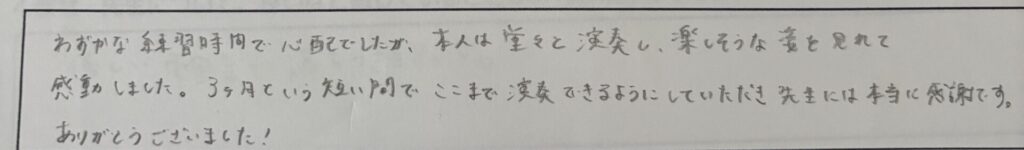 わずかな練習時間で心配でしたが、本人は堂々と演奏し、楽しそうな姿を見れて
感動しました。3ヶ月という短い間でここまで演奏できるようにしていただき先生には本当に感謝です。
ありがとうございました!